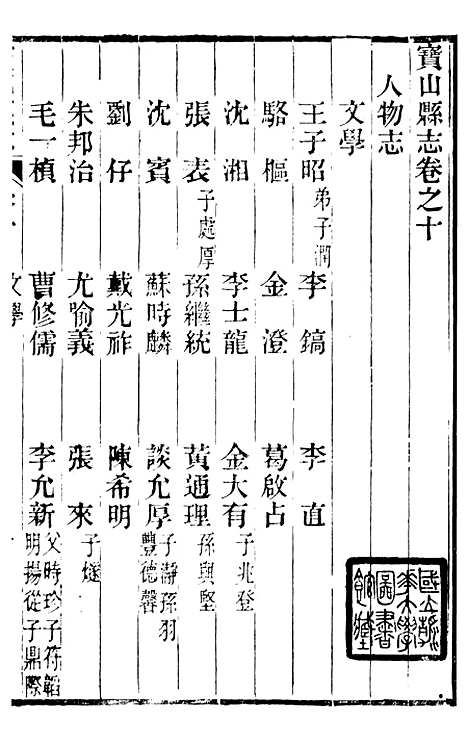 寶山縣志卷之十
人物志
文學
王子昭弟子潤 李鎬 李直
駱樞 金澄 葛啟占
沈湘 李士龍 金大有子兆登
張表子處厚 孫繼統 黃通理孫與堅
沈賓 蘇時麟 談允厚子瀞孫羽豐德馨
劉仔 戴光祚 陳希明
朱邦治 尤喻義 張來子燧
毛一楨 曹修儒 李允新父時珍子符韜明揚從子鼎際
文學